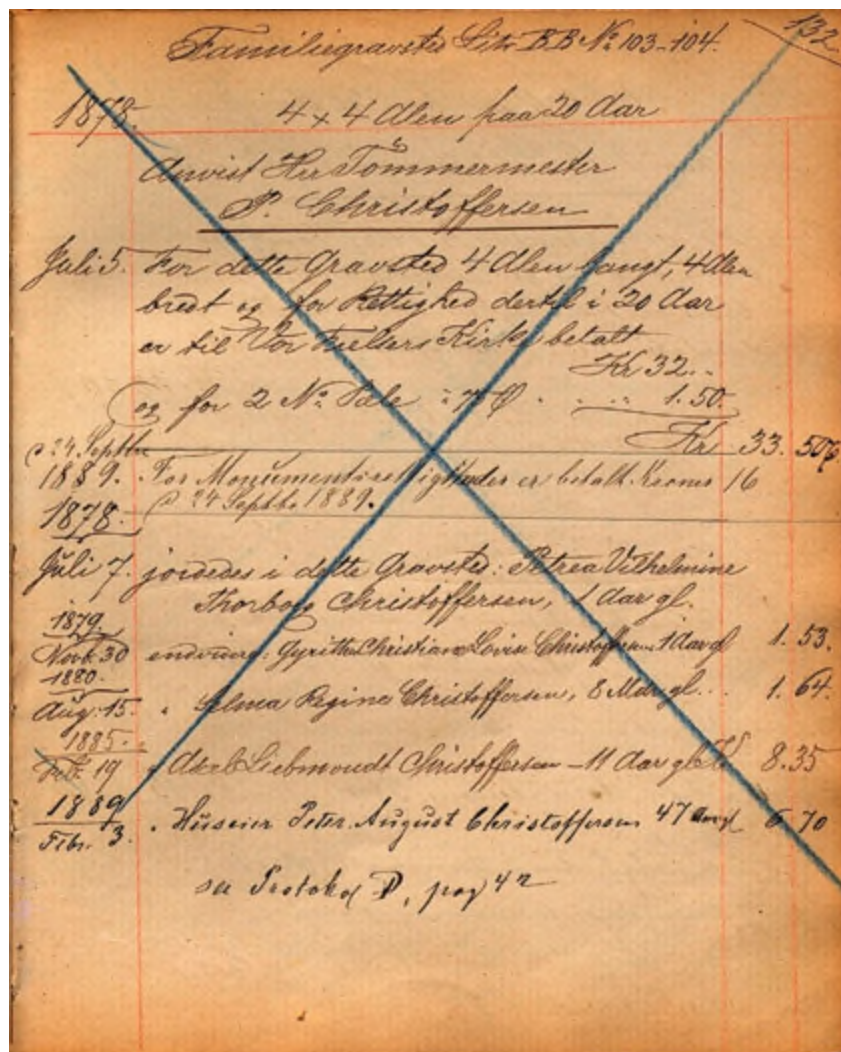 132.
Familiegravsted Litr. B.B. No 103-104.
1878. 4 x 4 Alen paa 20 Aar
Anvist Hrr Tömmermester
P. Christoffersen
Juli 5. For dette Gravsted 4 Alen langt, 4 Alen
bredt og for Rettighed dertil i 20 Aar
er til Vor Frelsers Kirke betalt
Kr 32..
og for 2 No Pæle 1.50.
Kr 33. 50
24 Septbr
1889. For Monumentsrettigheder er betalt Kroner 16
24 Septbr. 1889.
1878.
Juli 7. jordedes i dette Gravsted: Petrea Vilhelmine
Thorborg Christoffersen, 1 Aar gl.
1879.
Novb. 30 endvidere: Gyritha Christiane Lovise Christoffersen 1 Aar gl 1. 53.
1880.
Aug. 15. " Selma Regine Christoffersen, 8 Mdr gl. .. 1. 64.
1885.
Feb. 19 " Christoffersen - 11 Aar gl 8.35
1889
Febr. 3. " Huseier Peter August Christoffersen 47 Aar gl 6 70
se Protokol D, pag 42